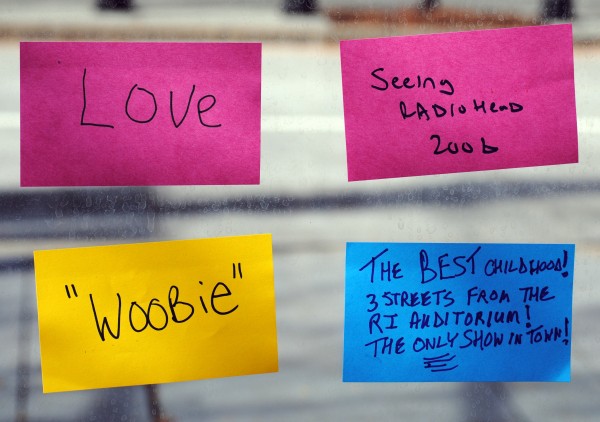 Love
Seeing
RADIOHEAD
2006
"WOOBie"
THE BEST CHILDHOOD!
3 STREETS FROM THE
RI AUDITORIUM!
THE ONLY SHOW IN TOWN!